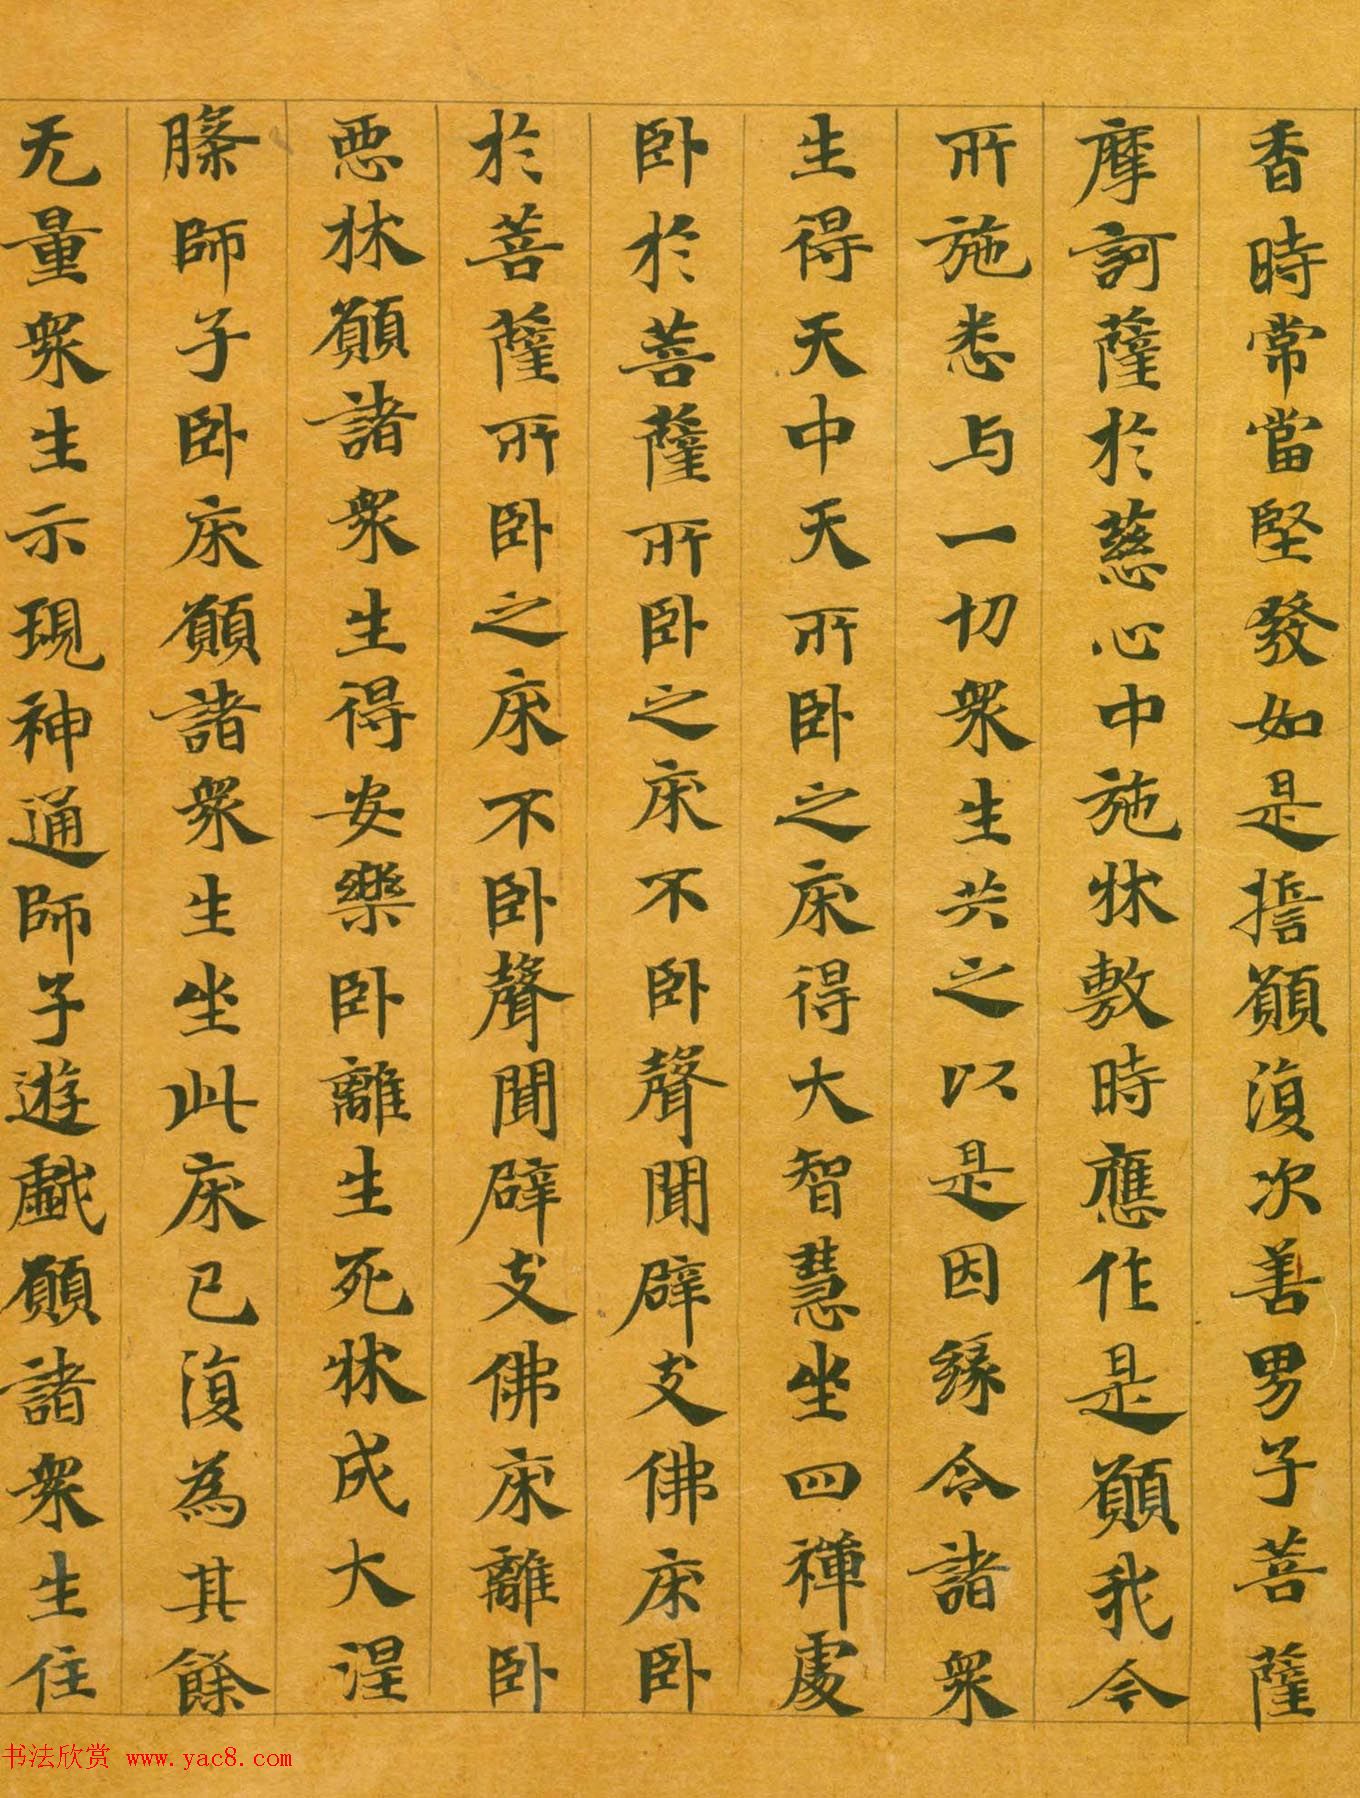 香時常當堅發如是擔願復次善男子菩薩
摩訶薩於慈心中施牀敷時應作是願我今
所施悉与一切衆生共之以是因緣令諸衆
生得天中天所卧之床得大智慧坐四禪處
卧於菩薩所卧之床不卧聲聞辟支佛床卧
於菩薩所卧之床不卧聲聞辟支佛床離卧
惡牀願諸衆生得安樂卧離生死牀成大涅
槃師子卧床願諸衆生坐此床已復為其餘
无量衆生示現神通師子遊戲願諸衆生住
书法欣赏 www.yac8.com